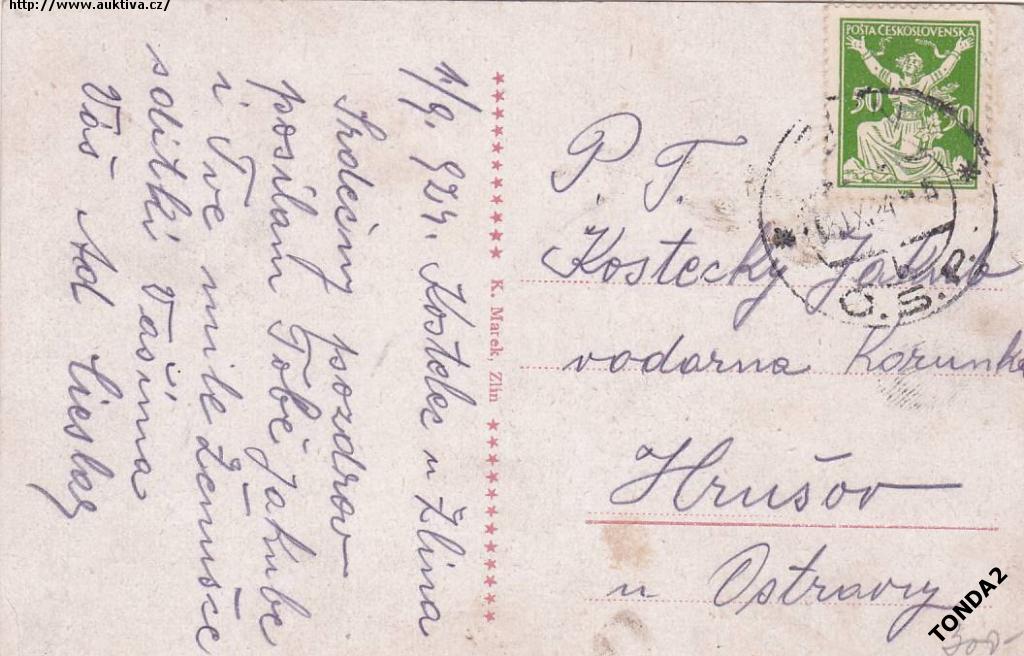 http://www.auktiva.cz/
1/9. 924. Kostelec u Zlína
Srdečný pozdrav
posílám Tobě Jakube
i Tve mile Ženušce
soditki Vašima
Váš Ad
K. Marek, Zlín
POŠTA ČESKOSLOVENSKA
50 50
IX. 24
Č. S. P.
P. T.
Kostecky Jakub
vodarna Korunka
Hrušov
u Ostravy
TONDA2
300-